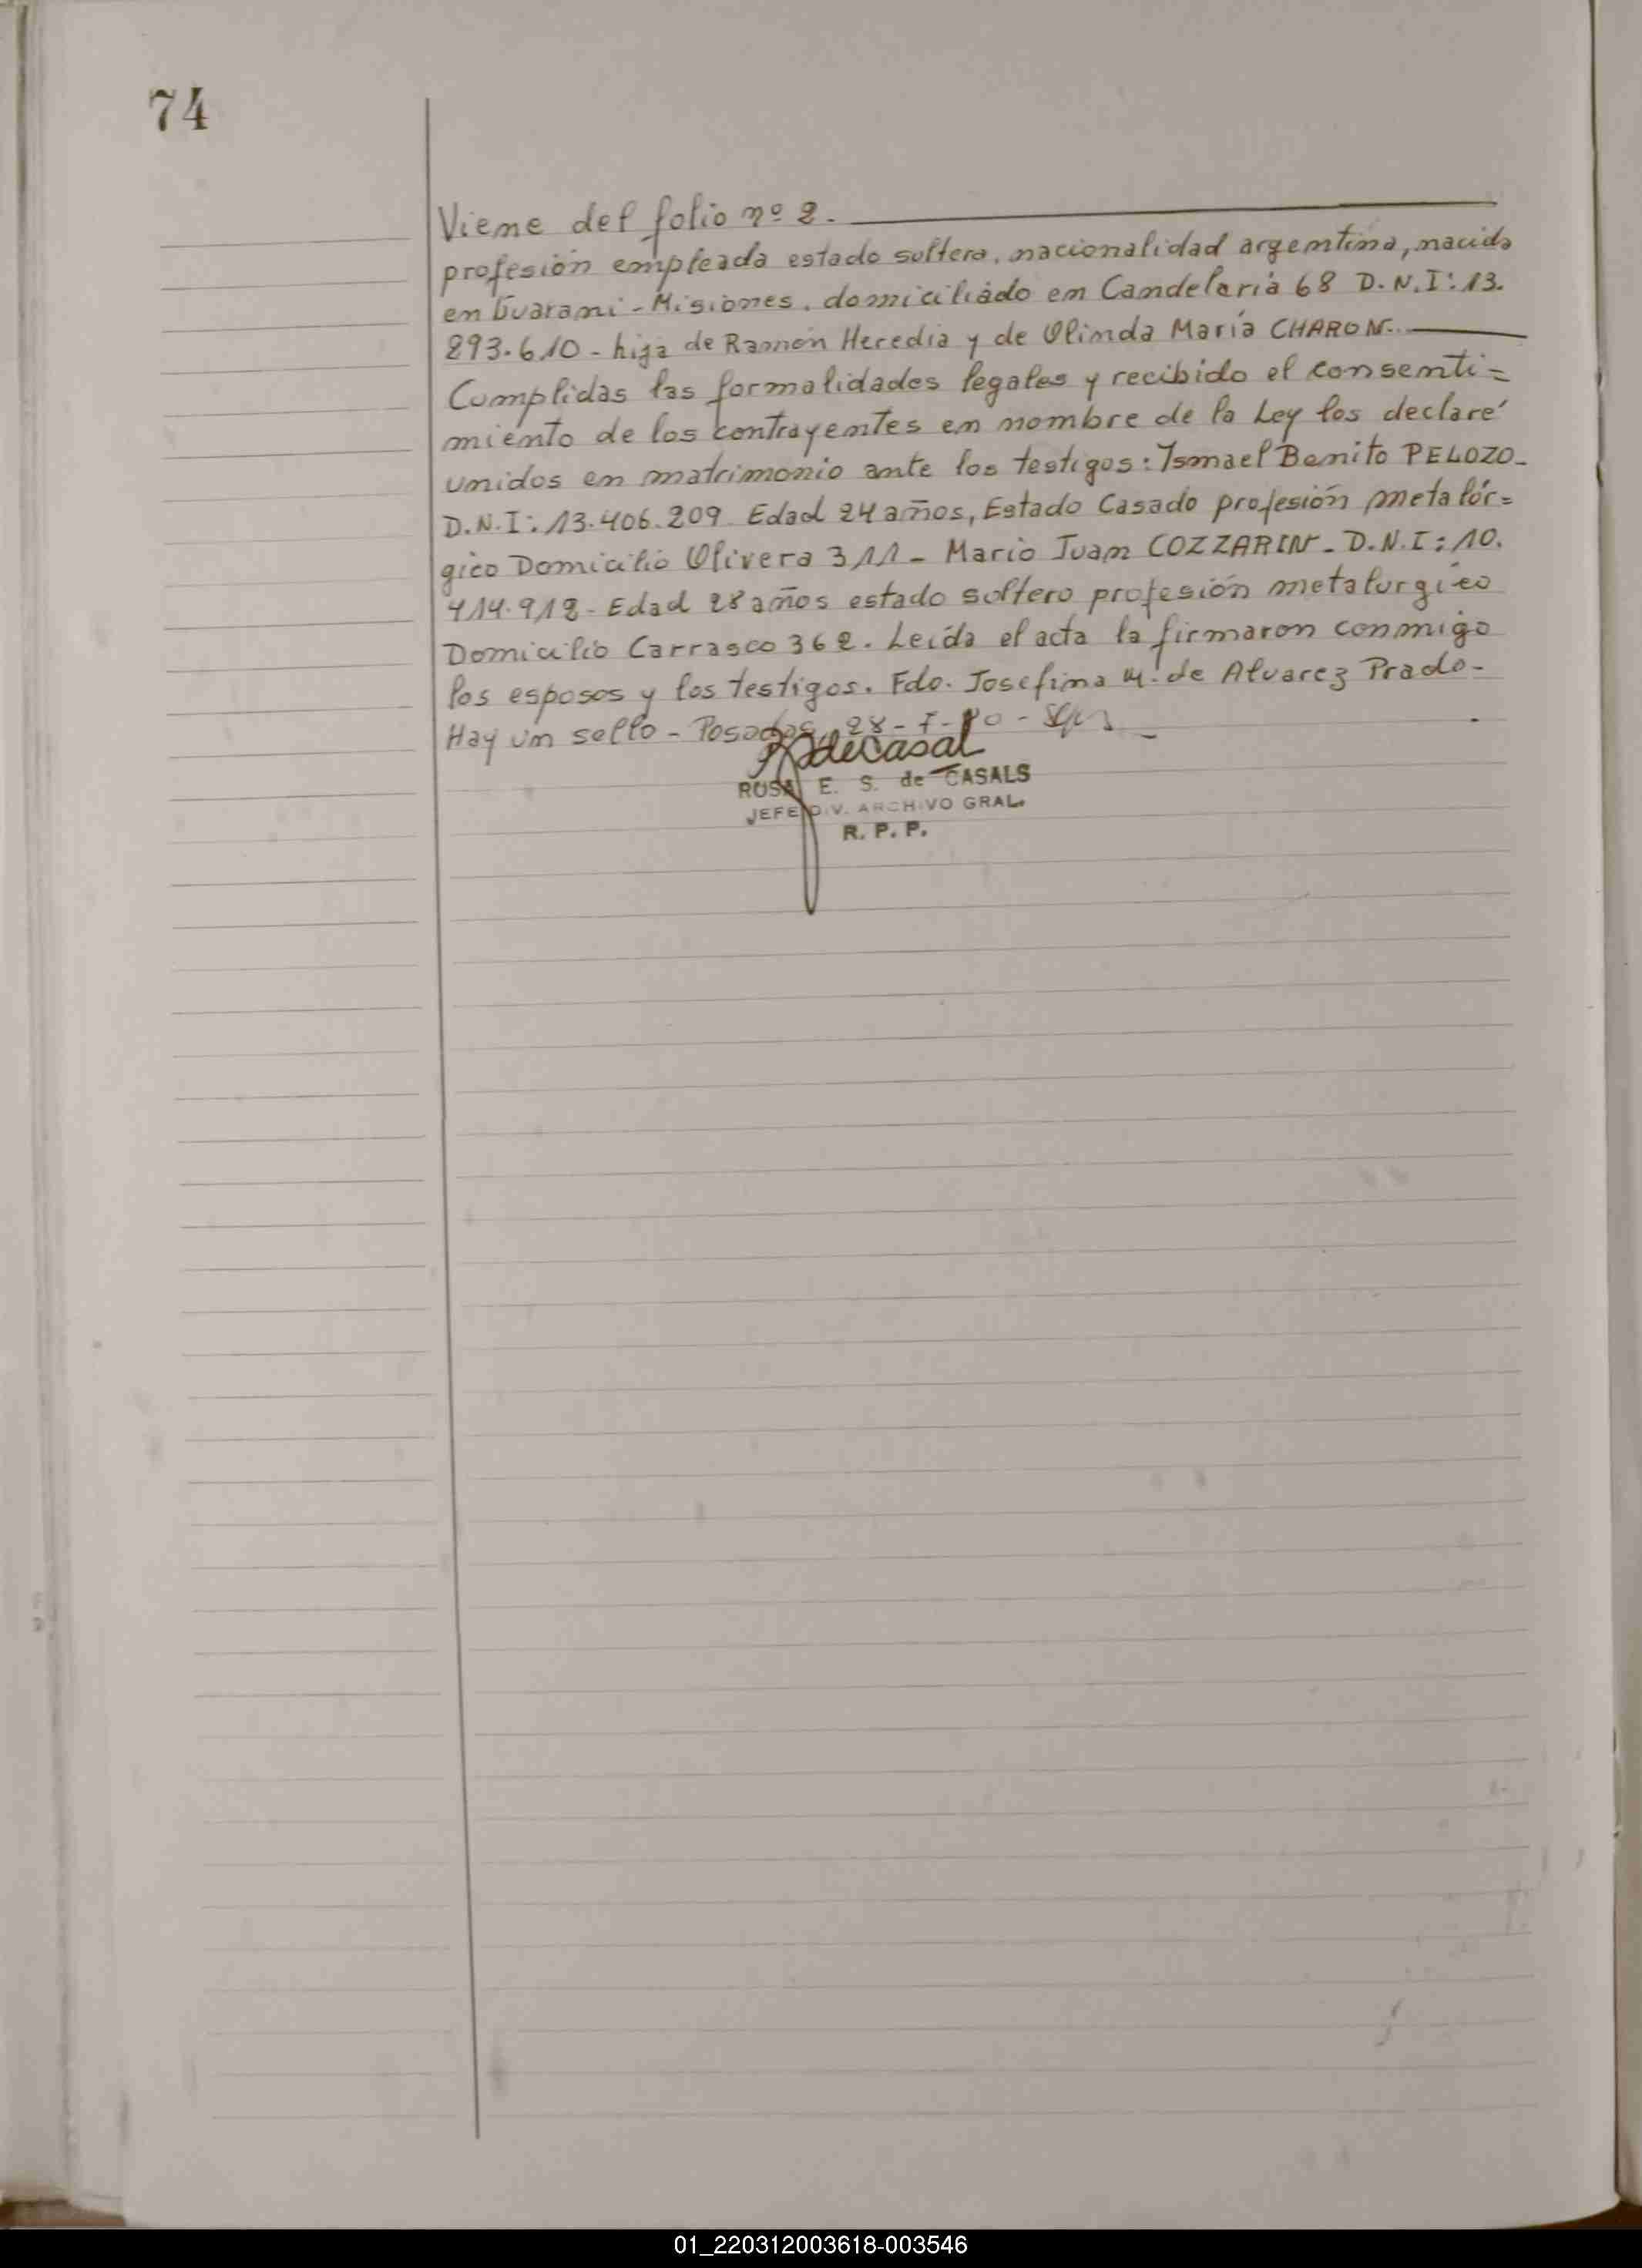 74
Viene del folio nº 2.
profesión empleada estado soltera, nacionalidad argentina, nacida
en Guarani - Misiones. domiciliado en Candelaria 68 D.N.I: 13.
893.610 - hija de Ramón Heredia y de Olinda María CHARON..
Cumplidas las formalidades legales y recibido el consenti=
miento de los contrayentes en nombre de la Ley los declaré
unidos en matrimonio ante los testigos: Ismael Benito PELOZO-
D.N.I: 13.406.209 Edad 24 años, Estado Casado profesión metalúr=
gico Domicilio Olivera 311 - Mario Juan COZZARIN - D.N.I: 10.
414.912 - Edad 28 años estado soltero profesión metalurgico
Domicilio Carrasco 362. Leída el acta la firmaron conmigo
los esposos y los testigos. Fdo. Josefina M. de Alvarez Prado -
Hay un sello - Posadas, 28 - I - 80 -
ROSA E. S. de CASALS
JEFE DIV. ARCHIVO GRAL.
R. P. P.
01_220312003618-003546